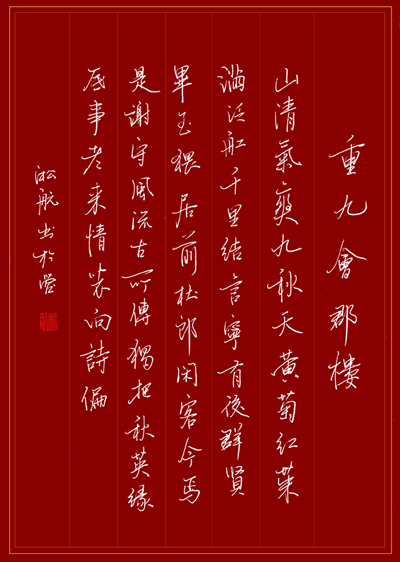 重九會郡樓
山清氣爽九秋天黃菊紅茱
滿泛舡千里結言寧有後群賢
畢至猥居前杜郎闲客今焉
是謝守風流古所傳獨把秋英緣
底事老来情味向詩偏
淞航书於